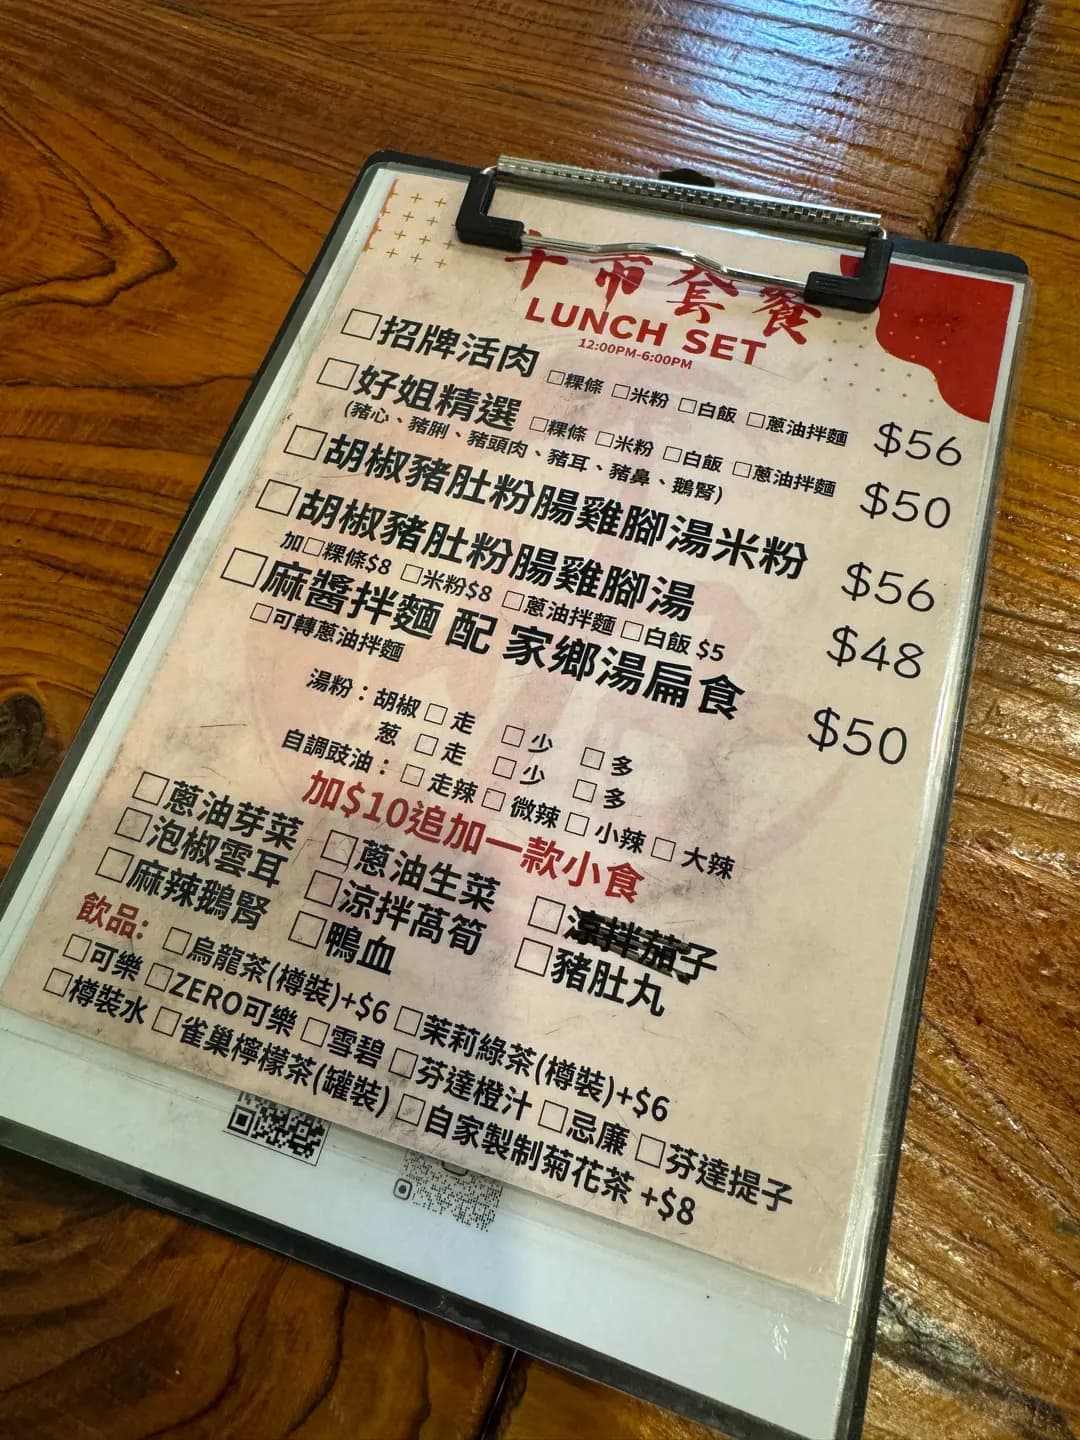 午市套餐
LUNCH SET
12:00PM-6:00PM
□招牌活肉 □粿條 □米粉 □白飯 □蔥油拌麵 $56
□好姐精選 □粿條 □米粉 □白飯 □蔥油拌麵 $50
(豬心、豬脷、豬頭肉、豬耳、豬鼻、鵝腎)
□胡椒豬肚粉腸雞腳湯米粉 $56
□胡椒豬肚粉腸雞腳湯 $48
加□粿條$8 □米粉$8 □蔥油拌麵 □白飯 $5
□麻醬拌麵 配 家鄉湯扁食 $50
□可轉蔥油拌麵
湯粉：胡椒 □ 走 □ 少 □ 多
葱 □ 走 □ 少 □ 多
自調豉油：□ 走辣 □ 微辣 □ 小辣 □ 大辣
加$10追加一款小食
□蔥油芽菜 □蔥油生菜 □涼拌茄子
□泡椒雲耳 □涼拌萵筍 □豬肚丸
□麻辣鵝腎 □鴨血
飲品: □烏龍茶(樽裝)+$6 □茉莉綠茶(樽裝)+$6
□可樂 □ZERO可樂 □雪碧 □芬達橙汁 □忌廉 □芬達提子
□樽裝水 □雀巢檸檬茶(罐裝) □自家製制菊花茶 +$8